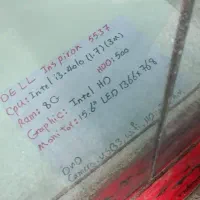 DELL Inspiron 5537
Cpu: Intel i3-4010 (1.7) (3M)
Ram: 8G HDD: 500
Graphic: Intel HD
Monitor: 15.6" LED 1366x768
DVD